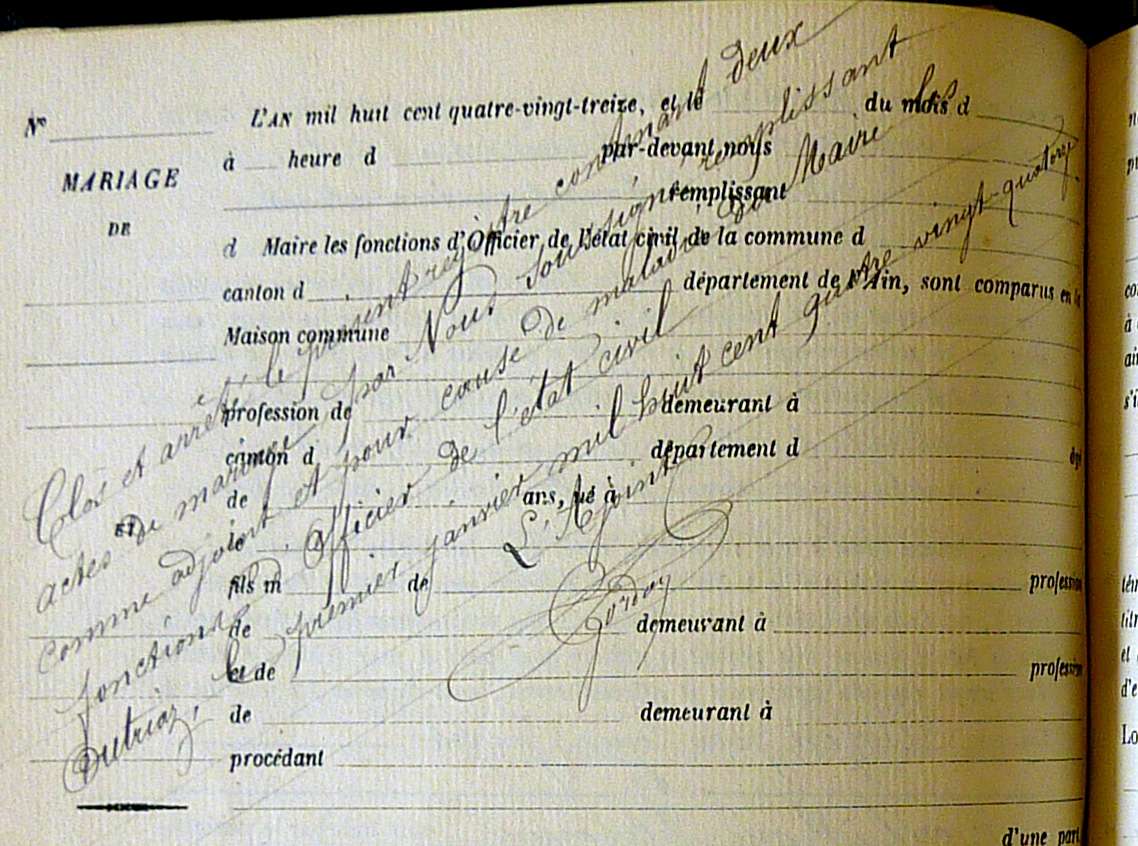 N°
MARIAGE
DE
ET
L'AN mil huit cent quatre-vingt-treize, et le du mois d
à heure d par-devant nous
remplissant
d Maire les fonctions d'Officier de l'état civil de la commune d
canton d département de l'Ain, sont comparus en la
Maison commune
profession de demeurant à
canton d département d âgé
de ans, né à
le
fils m de profession
de demeurant à
et de profession
de demeurant à
procédant
d'une part
Clos et arrêté le présent registre contenant deux
actes de mariage par Nous soussigné remplissant
comme adjoint et pour cause de maladie du Maire les
fonctions d'Officier de l'état civil
Outriaz, le premier janvier mil huit cent quatre vingt-quatorze
L'Ajoint